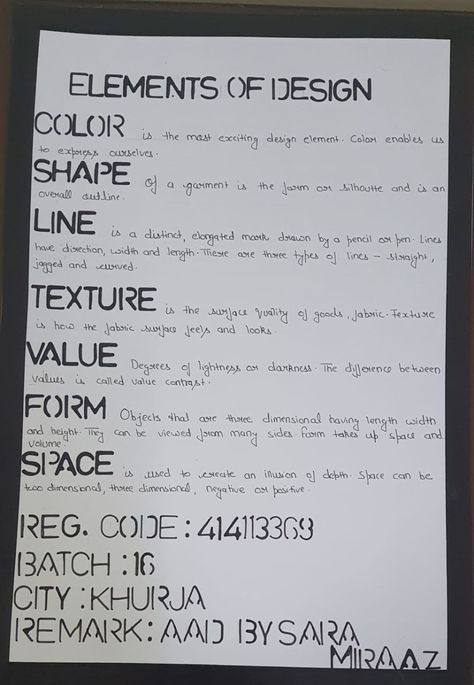 ELEMENTS OF DESIGN
COLOR is the most exciting design element. Color enables us
to express ourselves.
SHAPE of a garment is the form or silhoutte and is an
overall outline.
LINE is a distinct, elongated mark drawn by a pencil or pen. Lines
have direction, width and length. There are three types of lines - straight,
jagged and curved.
TEXTURE is the surface quality of goods, fabric. Texture
is how the fabric surface feels and looks.
VALUE Degrees of lightness or darkness. The difference between
values is called value contrast.
FORM Objects that are three dimensional having length width
and height. They can be viewed from many sides form takes up space and
volume.
SPACE is used to create an illusion of depth. Space can be
two dimensional, three dimensional, negative or positive.
REG. CODE : 414113369
BATCH : 16
CITY : KHURJA
REMARK : AAD BY SARA
MIRAAZ